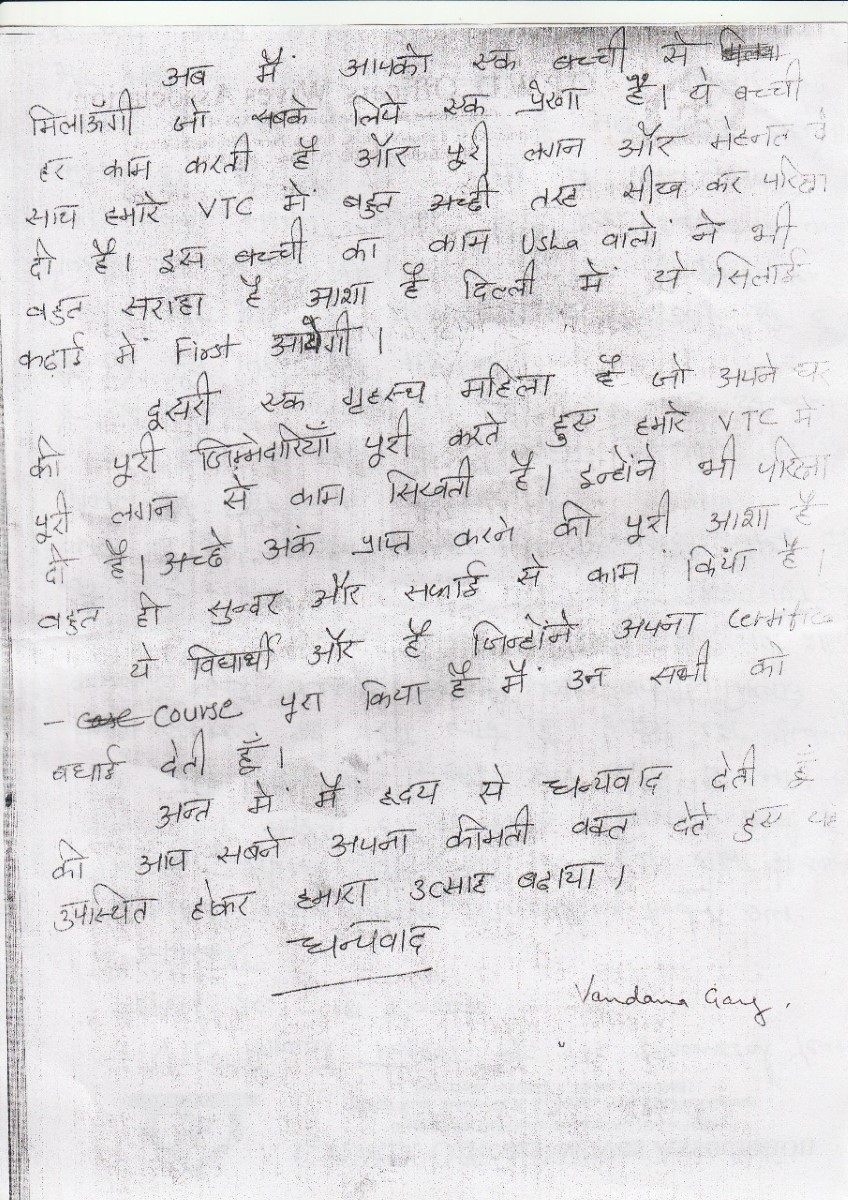 अब मैं आपको एक बच्ची से
मिलाऊँगी जो सबके लिये एक प्रेरणा है। ये बच्ची
हर काम करती है और पूरी लगन और मेहनत के
साथ हमारे VTC में बहुत अच्छी तरह सीख कर परिक्षा
दी है। इस बच्ची का काम Usha वालों ने भी
बहुत सराहा है आशा है दिल्ली में ये सिलाई
कढ़ाई में First आयेगी।
दूसरी एक गृहस्थ महिला है जो अपने घर
की पूरी जिम्मेदारियाँ पूरी करते हुए हमारे VTC में
पूरी लगन से काम सिखती है। इन्होंने भी परिक्षा
दी है। अच्छे अंक प्राप्त करने की पूरी आशा है
बहुत ही सुन्दर और सफाई से काम किया है।
ये विद्यार्थी और है जिन्होंने अपना
- Course पूरा किया है मैं उन सभी को
बधाई देती हूँ।
अन्त में मैं हृदय से धन्यवाद देती हूँ
की आप सबने अपना कीमती वक्त देते हुए
उपस्थित होकर हमारा उत्साह बढ़ाया।
धन्यवाद
Vandana Garg.